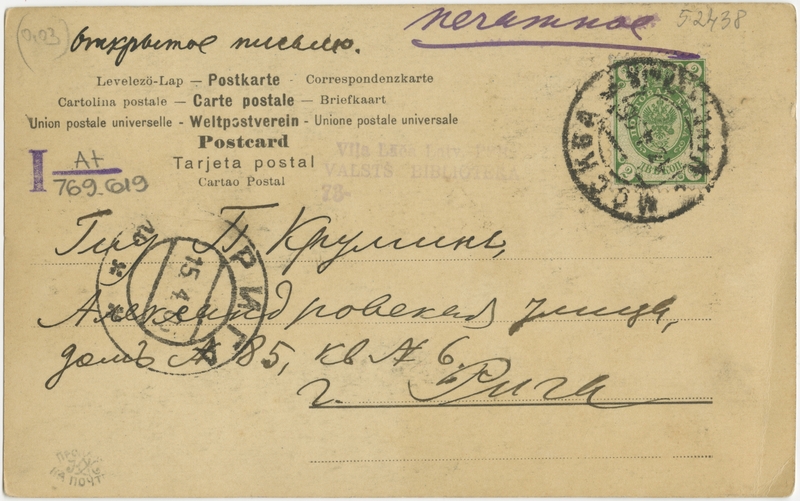 0,03
печатное
52438
Открытое письмо.
Levelező-Lap — Postkarte - Correspondenzkarte
Cartolina postale — Carte postale — Briefkaart
Union postale universelle - Weltpostverein - Unione postale universale
Postcard
Tarjeta postal
Cartao Postal
I At
769-619
VALSTS BIBLIOTEKA
78-
МОСКВА
2
РИГА
15.4
Александровская улица,
домъ № 85, кв № 6.
г. Рига